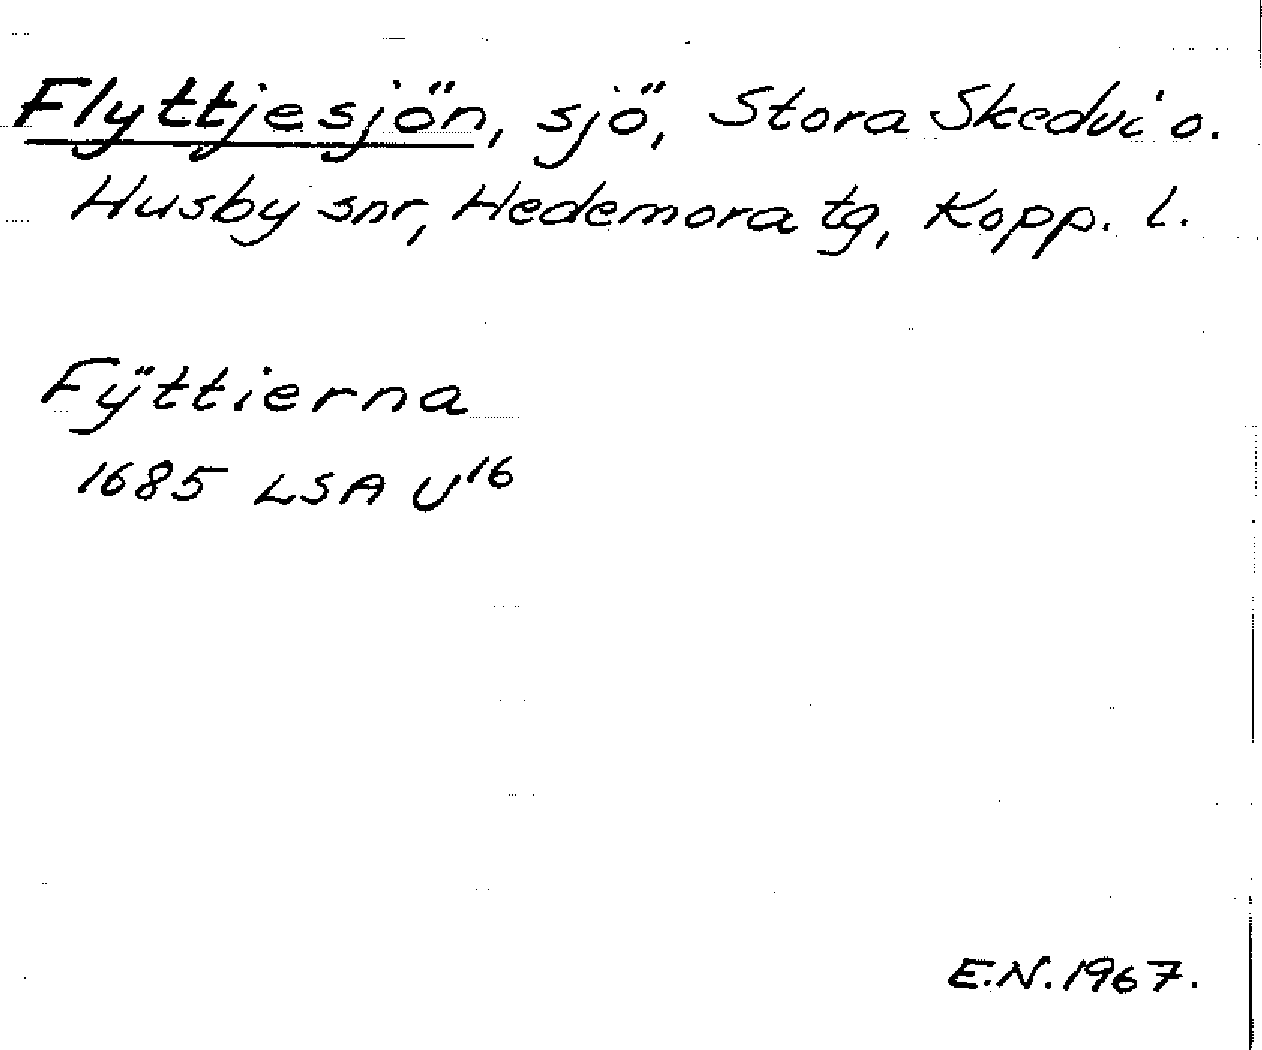 Flyttjesjön, sjö, Stora Skedvi o.
Husby snr, Hedemora tg, Kopp. l.
Fÿttierna
1685 LSA U16
E.N. 1967.